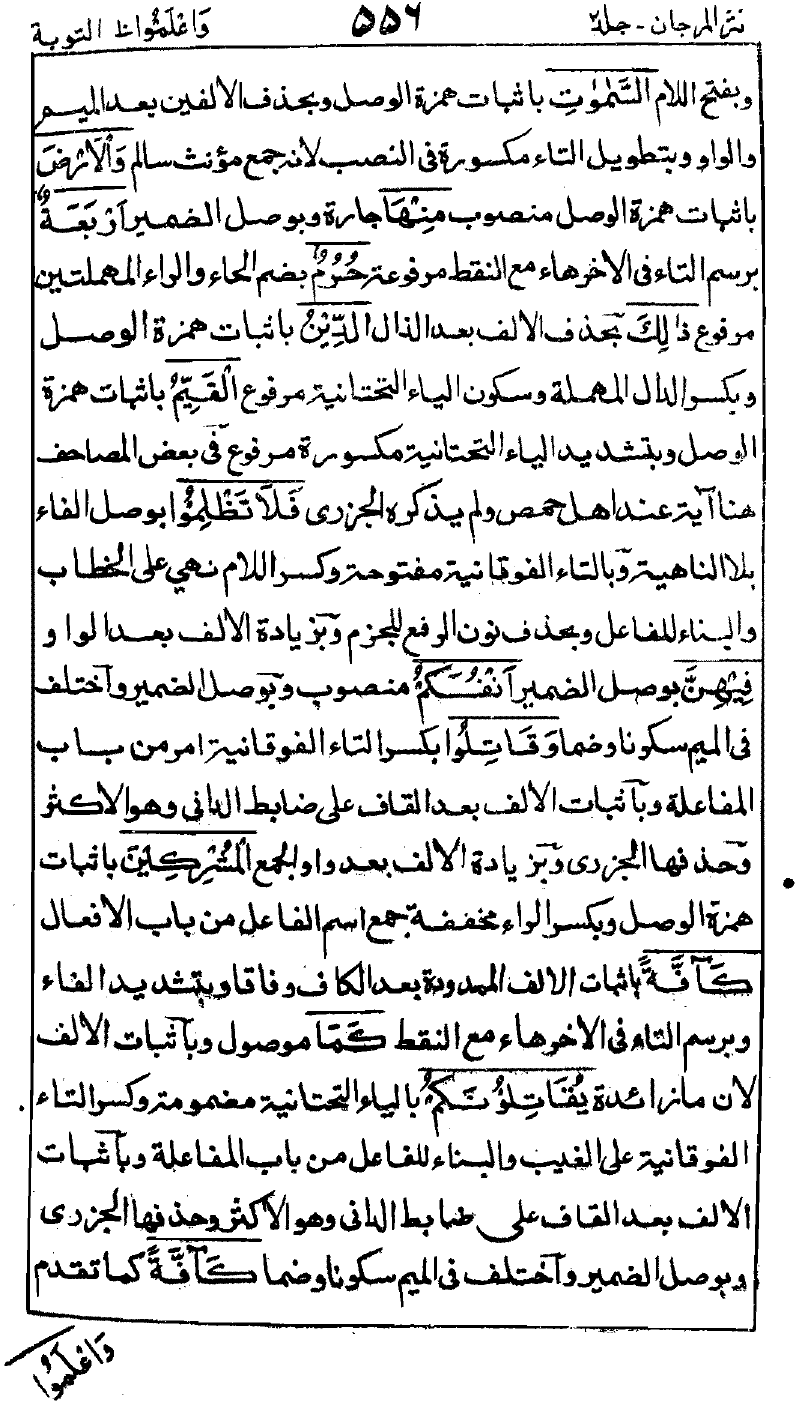 نثر المرجان - جلد٢ ٥٥٦ وَاعْلَمُوا١٠ التوبة
وبفتح اللام السَّمٰوٰتِ باثبات همزة الوصل وبحذف الالفين بعد الميم
والواو وبتطويل التاء مكسورة فى النصب لانه جمع مؤنث سالم وَالْاَرْضَ
باثبات همزة الوصل منصوب مِنْهَا جارة وبوصل الضمير اَرْبَعَةٌ
برسم التاء فى الاخر هاء مع النقط مرفوعة حُرُمٌ بضم الحاء والراء المهملتين
مرفوع ذٰلِكَ بحذف الالف بعد الذال الدِّيْنُ باثبات همزة الوصل
وبكسر الدال المهملة وسكون الياء التحتانية مرفوع الْقَيِّمُ باثبات همزة
الوصل وبتشديد الياء التحتانية مكسورة مرفوع فى بعض المصاحف
هنا آية عند اهل حمص ولم يذكره الجزرى فَلَا تَظْلِمُوْا بوصل الفاء
بلا الناهية وبالتاء الفوقانية مفتوحة وكسر اللام نهي على الخطاب
والبناء للفاعل وبحذف نون الرفع للجزم وبزيادة الالف بعد الواو
فِيْهِنَّ بوصل الضمير اَنْفُسَكُمْ منصوب وبوصل الضمير واختلف
فى الميم سكونا وضما وَقَاتِلُوا بكسر التاء الفوقانية امر من باب
المفاعلة وباثبات الالف بعد القاف على ضابط الدانى وهو الاكثر
وحذفها الجزرى وبزيادة الالف بعد واو الجمع الْمُشْرِكِيْنَ باثبات
همزة الوصل وبكسر الراء مخففة جمع اسم الفاعل من باب الافعال
كَآفَّةً باثبات الالف الممدودة بعد الكاف وفاقا وبتشديد الفاء
وبرسم التاء فى الاخر هاء مع النقط كَمَا موصول وباثبات الالف
لان ما زائدة يُقَاتِلُوْنَكُمْ بالياء التحتانية مضمومة وكسر التاء
الفوقانية على الغيب والبناء للفاعل من باب المفاعلة وباثبات
الالف بعد القاف على ضابط الدانى وهو الاكثر وحذفها الجزرى
وبوصل الضمير واختلف فى الميم سكونا وضما كَآفَّةً كما تقدم
وَاعْلَمُوْا